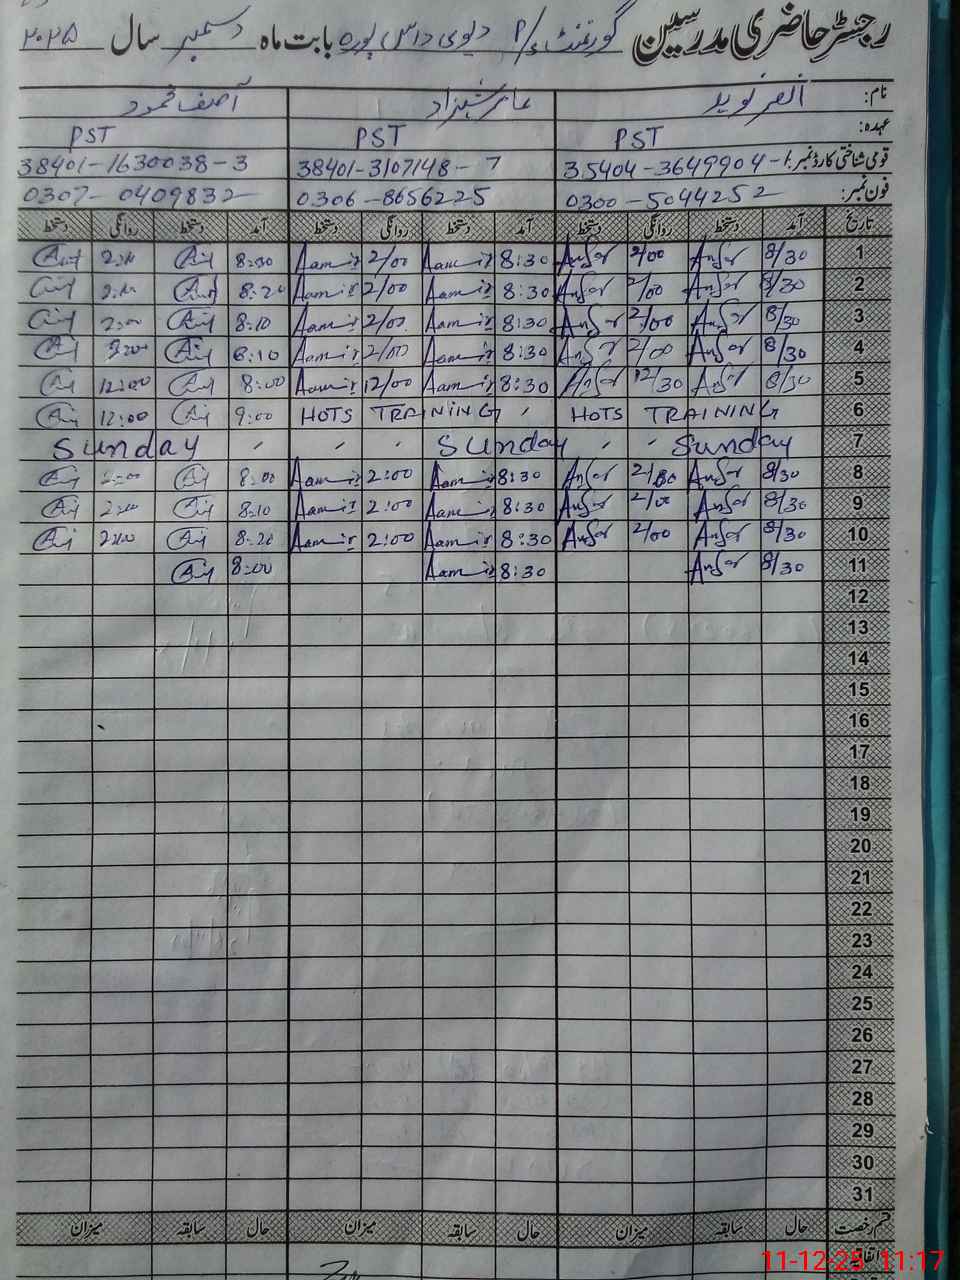 رجسٹر حاضری مدرسین گورنمنٹ P/S دیوی داس پورہ بابت ماہ دسمبر سال ۲۰۲۵
نام: انصر نوید عامر شہزاد آصف محمود
عہدہ: PST PST PST
قومی شناختی کارڈ نمبر: 35404-3649904-1 38401-3107148-7 38401-1630038-3
فون نمبر: 0300-5044252 0306-8656225 0307-0409832
تاریخ آمد دستخط روانگی دستخط آمد دستخط روانگی دستخط آمد دستخط روانگی دستخط
1 8/30 Ansar 2/00 Ansar 8:30 Aamir 2/00 Aamir 8:30 2:00
2 8/30 Ansar 2/00 Ansar 8:30 Aamir 2/00 Aamir 8:20 2:00
3 8/30 Ansar 2/00 Ansar 8:30 Aamir 2/00 Aamir 8:10 2:00
4 8/30 Ansar 2/00 Ansar 8:30 Aamir 2/00 Aamir 8:10 2:00
5 8/30 Ansar 12/30 Ansar 8:30 Aamir 12/00 Aamir 8:00 12:00
6 HOTS TRAINING HOTS TRAINING 9:00 12:00
7 Sunday Sunday Sunday
8 8/30 Ansar 2/00 Ansar 8:30 Aamir 2:00 Aamir 8:00 2:00
9 8/30 Ansar 2/00 Ansar 8:30 Aamir 2:00 Aamir 8:10 2:00
10 8/30 Ansar 2/00 Ansar 8:30 Aamir 2:00 Aamir 8:20 2:00
11 8/30 Ansar 8:30 Aamir 8:00
12
13
14
15
16
17
18
19
20
21
22
23
24
25
26
27
28
29
30
31
قسم رخصت حال سابقہ میزان حال سابقہ میزان حال سابقہ میزان
11-12-25 11:17